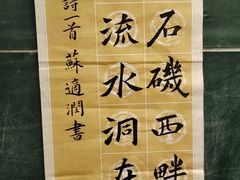 石磯西畔
流水洞在
詩一首 蘇適潤書